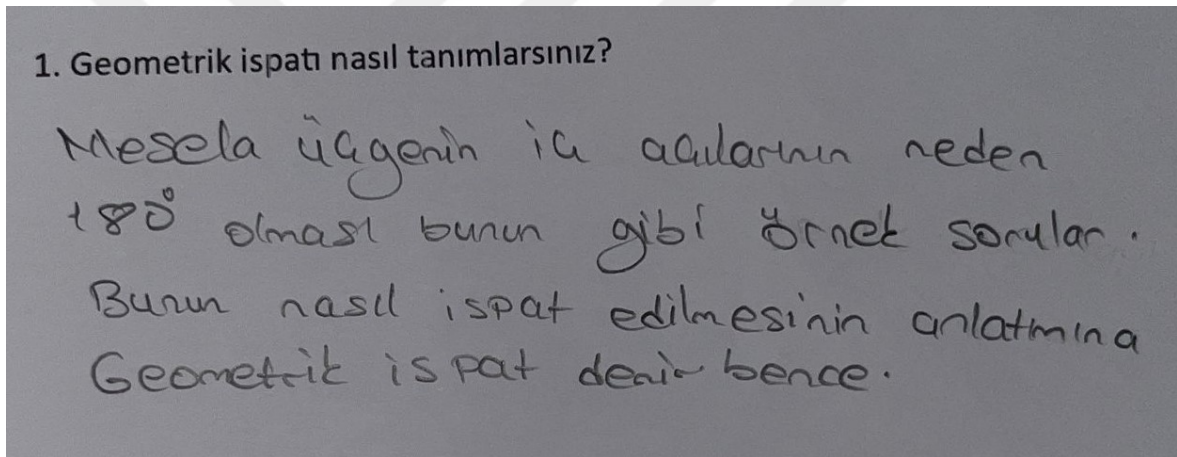 1. Geometrik ispatı nasıl tanımlarsınız?
Mesela üçgenin iç açılarının neden
180° olması bunun gibi örnek sorular.
Bunun nasıl ispat edilmesinin anlatımına
Geometrik ispat denir bence.